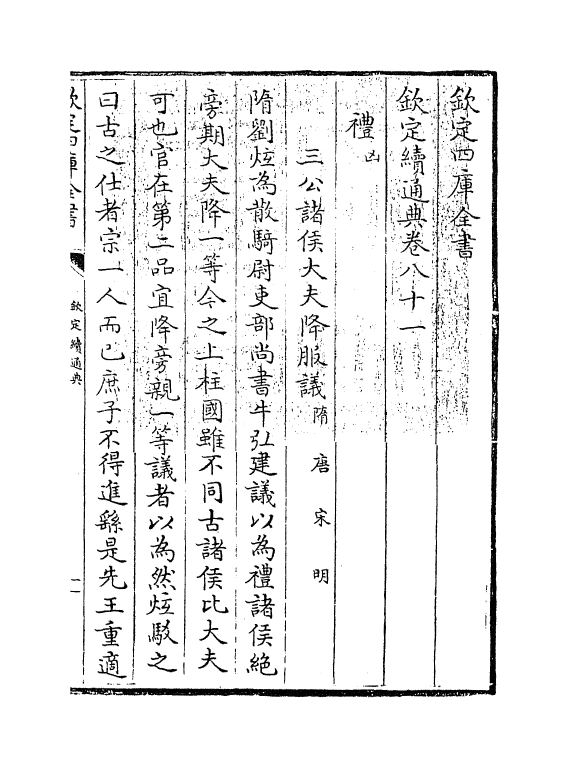 欽定四庫全書
欽定續通典卷八十一
禮凶
三公諸侯大夫降服議隋 唐 宋 明
隋劉炫為散騎尉吏部尚書牛弘建議以為禮諸侯絕
旁期大夫降一等今之上柱國雖不同古諸侯比大夫
可也官在第二品宜降旁親一等議者以為然炫駁之
曰古之仕者宗一人而已庶子不得進繇是先王重適
欽定四庫全書
欽定續通典